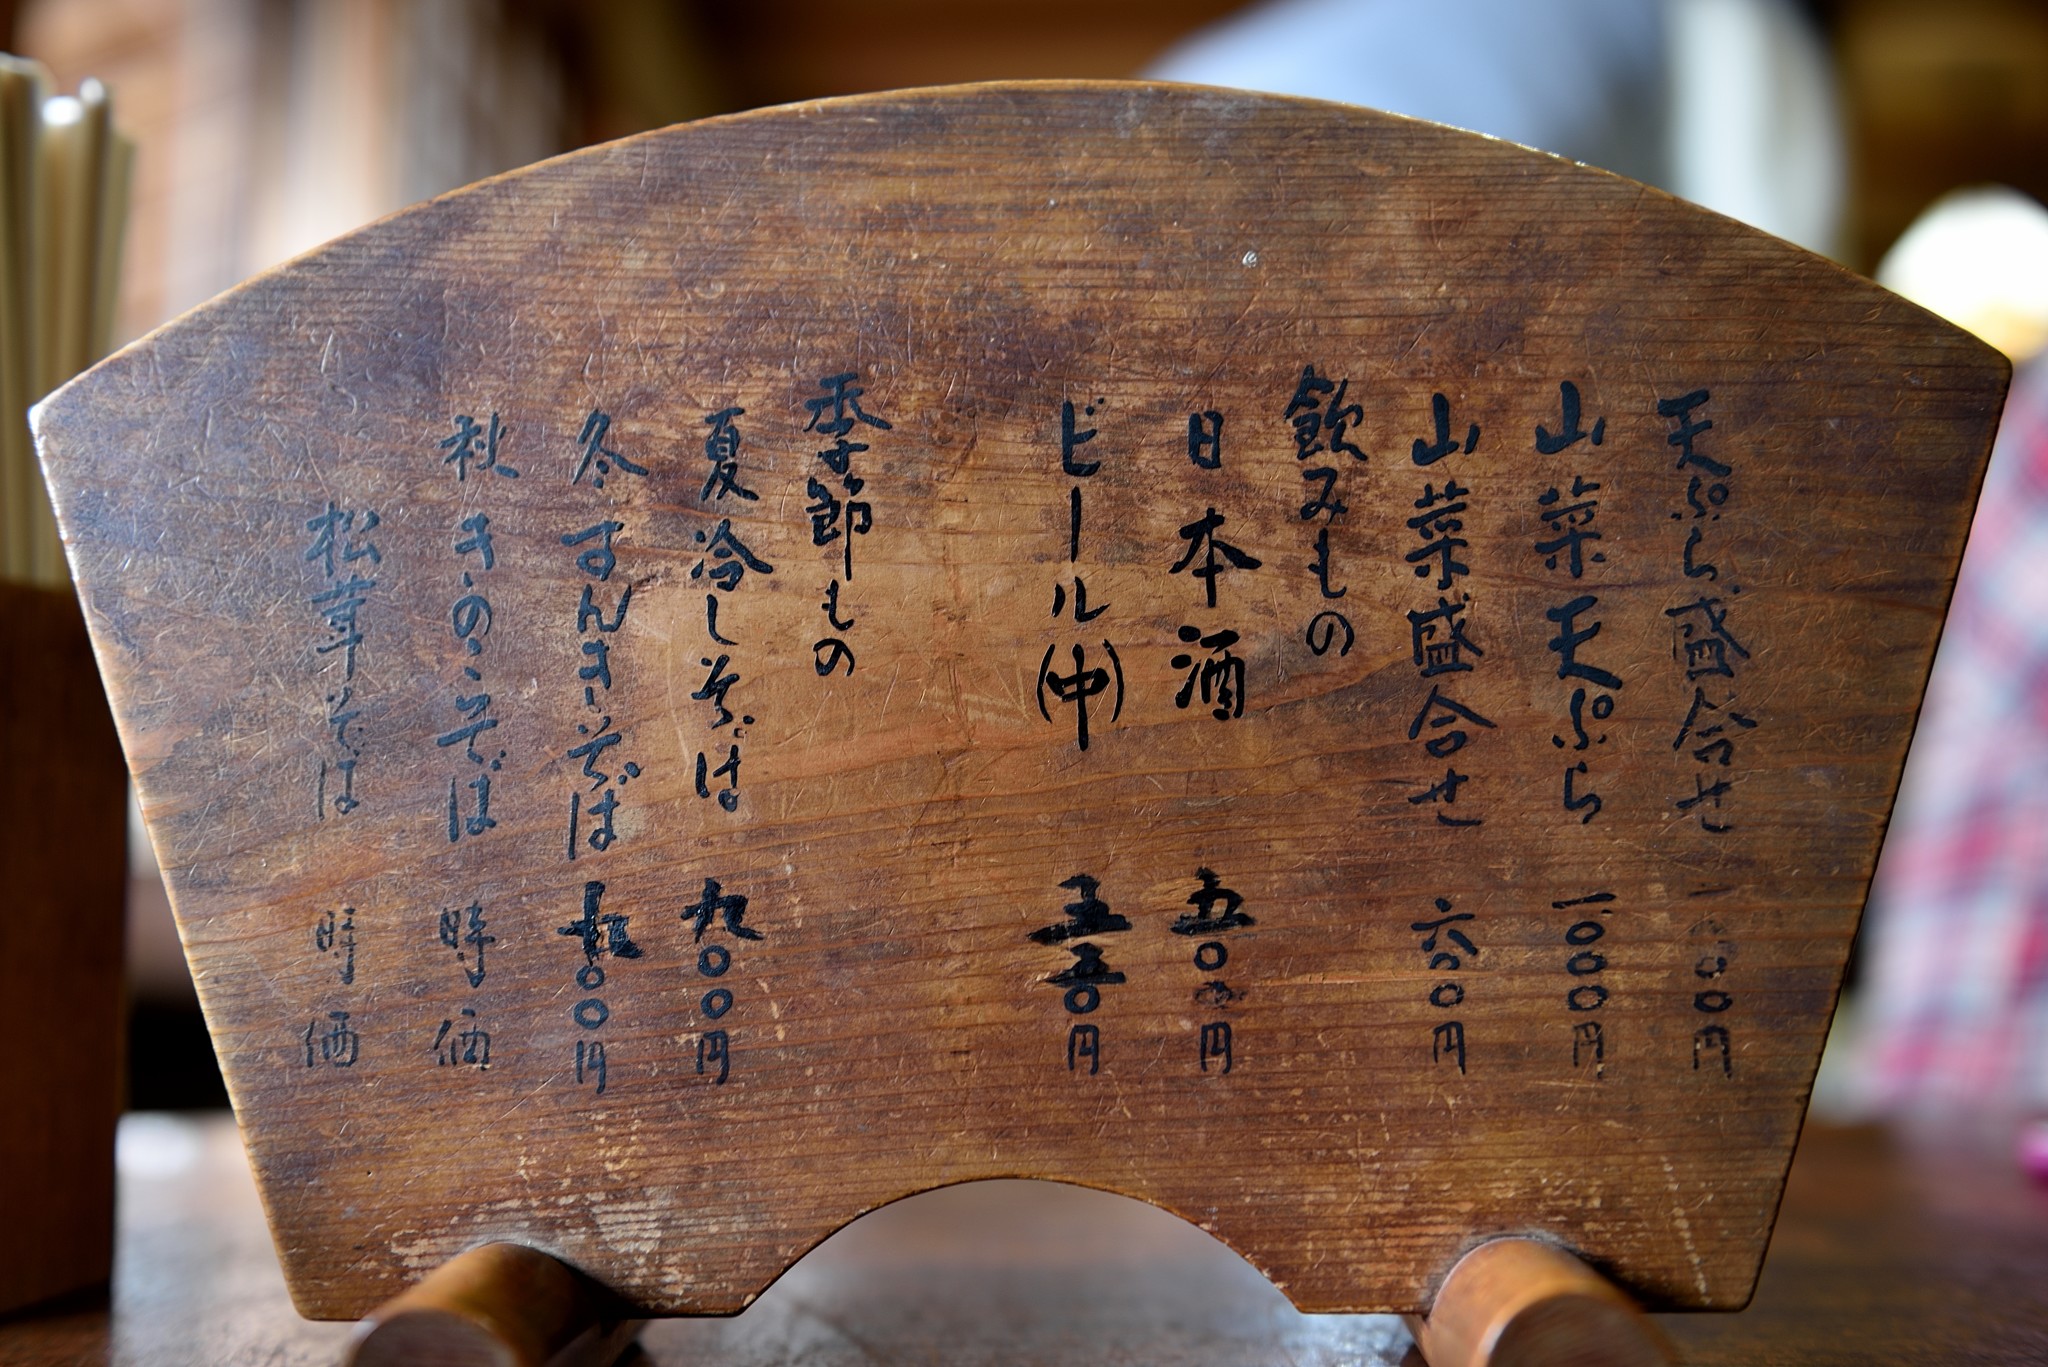 天ぷら盛合せ 一〇〇〇円
山菜天ぷら 一〇〇〇円
山菜盛合せ 六〇〇円
飲みもの
日本酒 五〇〇円
ビール(中) 五五〇円
季節もの
夏 冷しそば 九〇〇円
冬 すんきそば 九〇〇円
秋 きのこそば 時価
松茸そば 時価